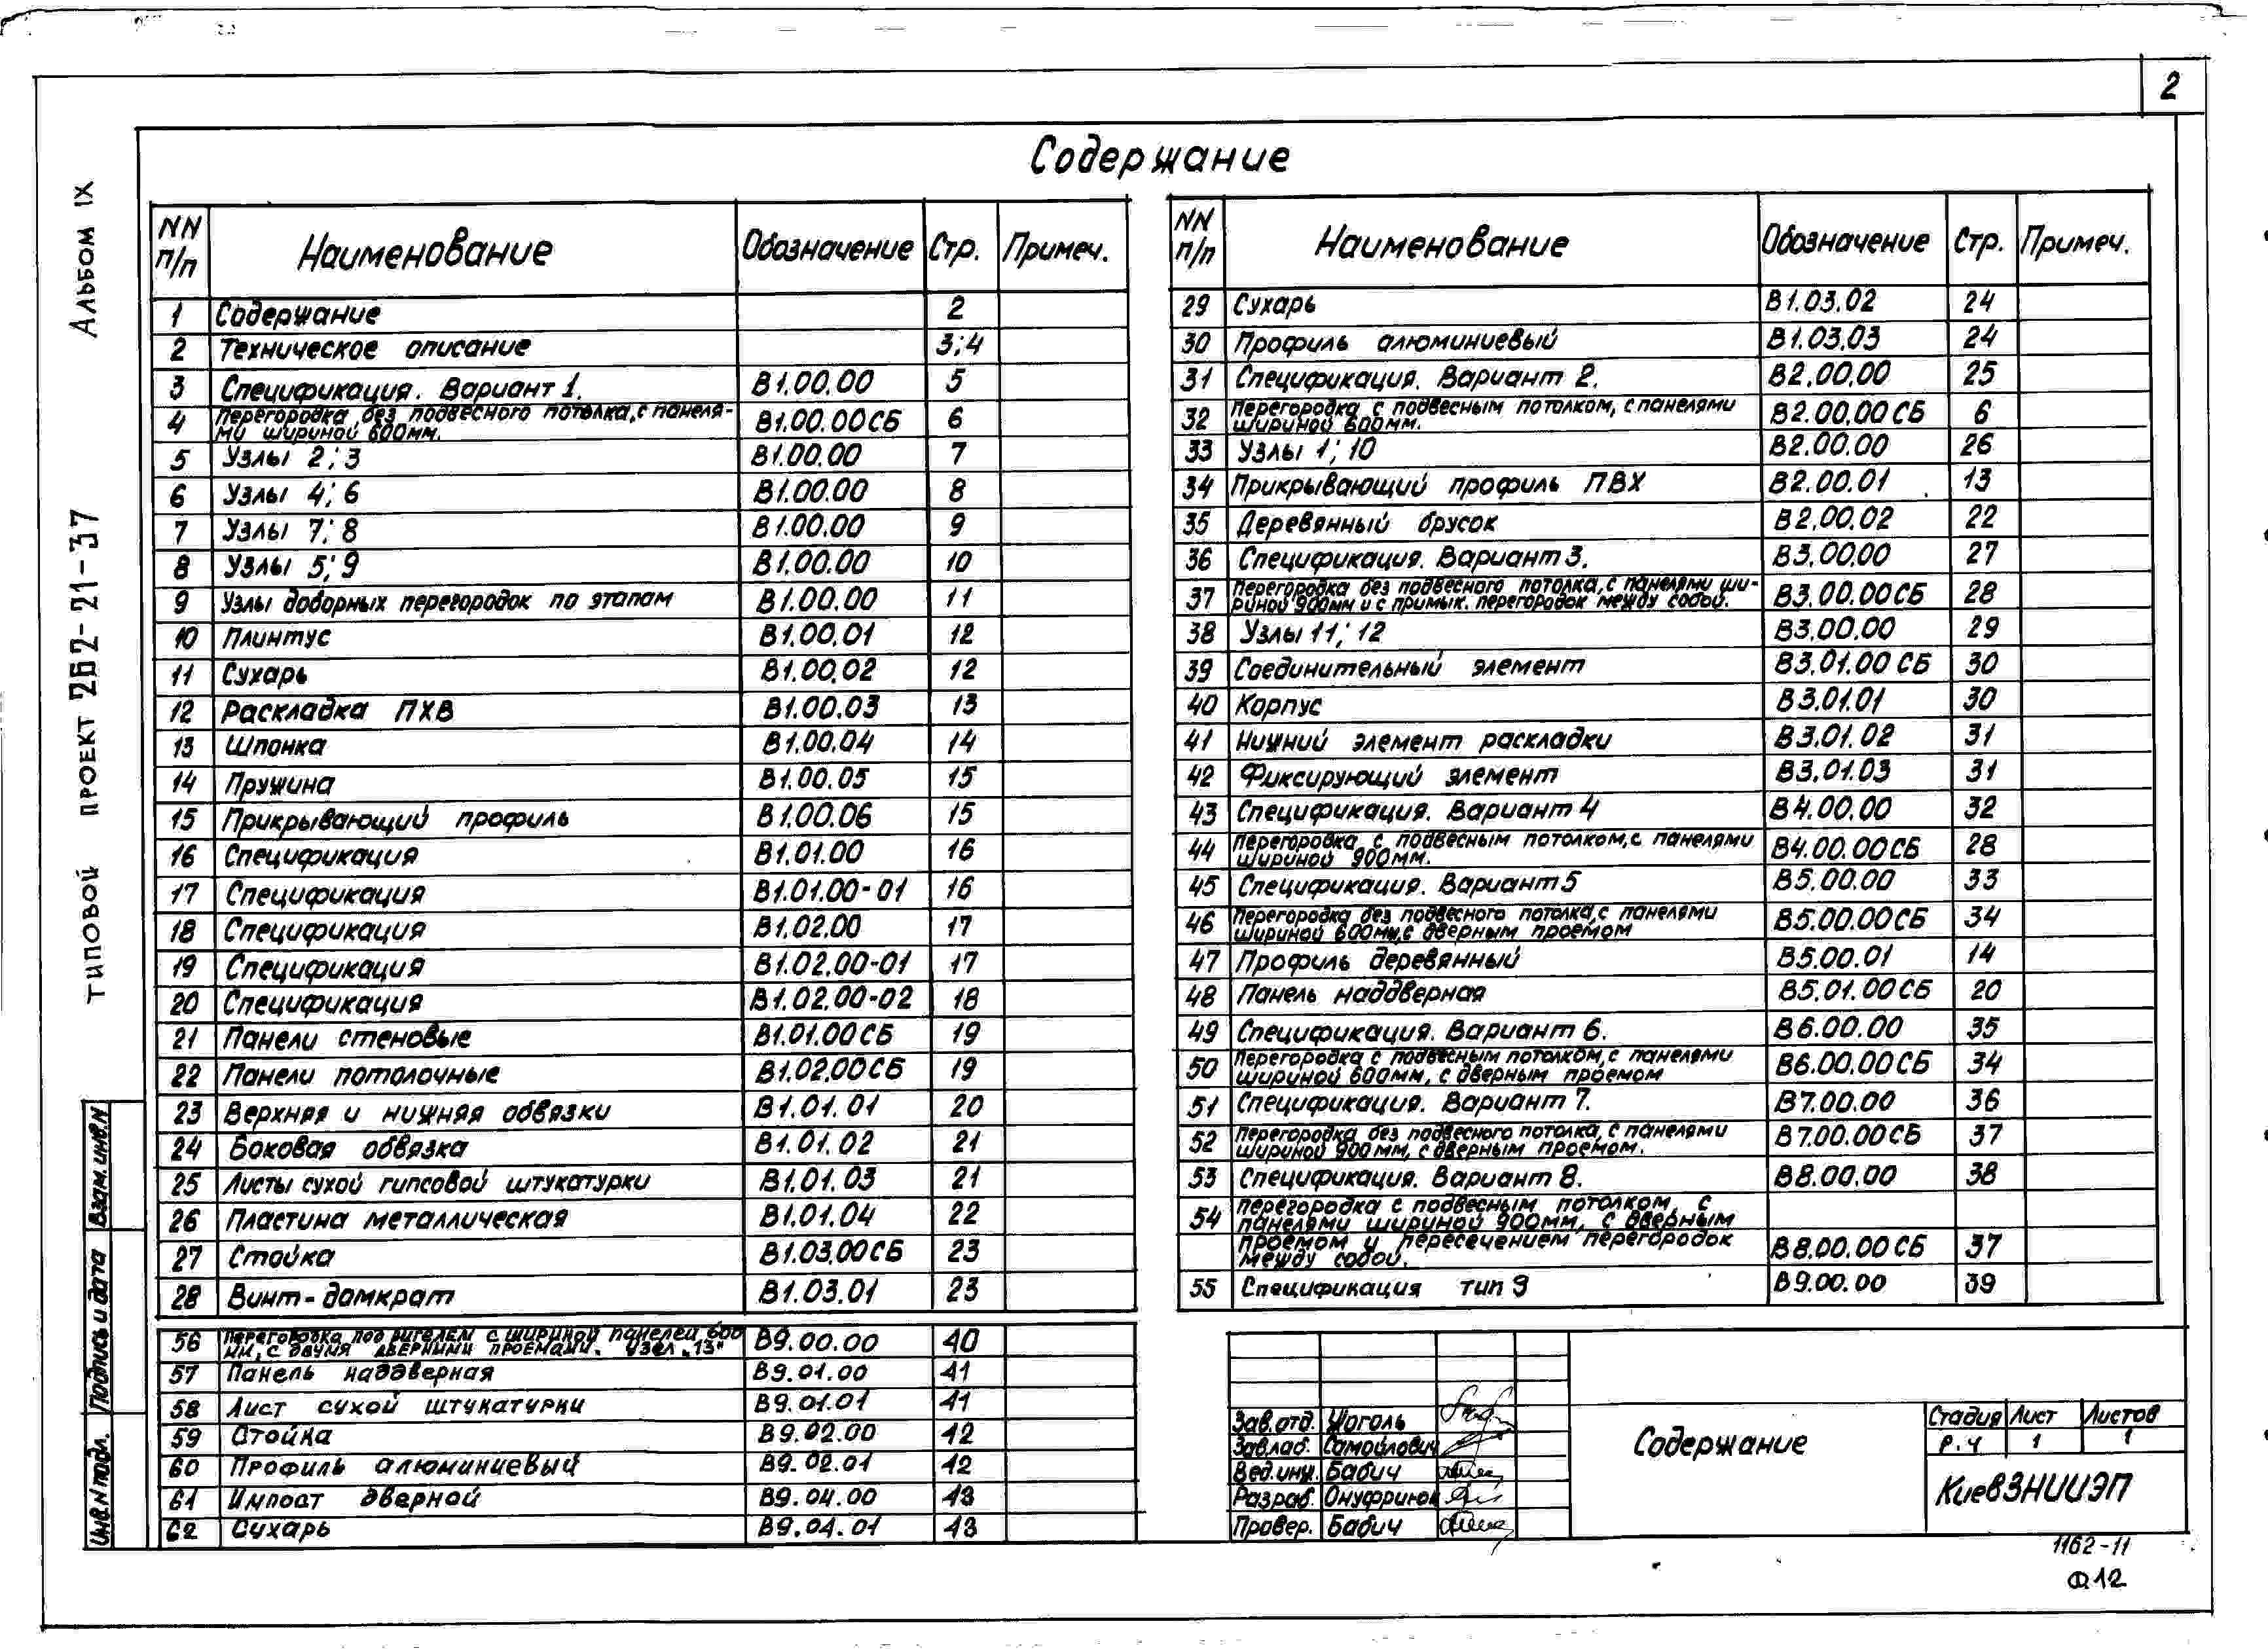 2
Содержание
АЛЬБОМ IX
ТИПОВОЙ ПРОЕКТ 262-21-37
NN п/п Наименование Обозначение Стр. Примеч.
1 Содержание 2
2 Техническое описание 3;4
3 Спецификация. Вариант 1. В1.00.00 5
4 Перегородка без подвесного потолка, с панеля-
ми шириной 600мм. В1.00.00СБ 6
5 Узлы 2;3 В1.00.00 7
6 Узлы 4;6 В1.00.00 8
7 Узлы 7;8 В1.00.00 9
8 Узлы 5;9 В1.00.00 10
9 Узлы доборных перегородок по этапам В1.00.00 11
10 Плинтус В1.00.01 12
11 Сухарь В1.00.02 12
12 Раскладка ПХВ В1.00.03 13
13 Шпонка В1.00.04 14
14 Пружина В1.00.05 15
15 Прикрывающий профиль В1.00.06 15
16 Спецификация В1.01.00 16
17 Спецификация В1.01.00-01 16
18 Спецификация В1.02.00 17
19 Спецификация В1.02.00-01 17
20 Спецификация В1.02.00-02 18
21 Панели стеновые В1.01.00СБ 19
22 Панели потолочные В1.02.00СБ 19
23 Верхняя и нижняя обвязки В1.01.01 20
24 Боковая обвязка В1.01.02 21
25 Листы сухой гипсовой штукатурки В1.01.03 21
26 Пластина металлическая В1.01.04 22
27 Стойка В1.03.00СБ 23
28 Винт-домкрат В1.03.01 23
56 Перегородка под ригелем с шириной панелей 600
мм, с двумя дверными проемами. Узел „13" В9.00.00 40
57 Панель наддверная В9.01.00 41
58 Лист сухой штукатурки В9.01.01 41
59 Стойка В9.02.00 42
60 Профиль алюминиевый В9.02.01 42
61 Импост дверной В9.04.00 43
62 Сухарь В9.04.01 43
NN п/п Наименование Обозначение Стр. Примеч.
29 Сухарь В1.03.02 24
30 Профиль алюминиевый В1.03.03 24
31 Спецификация. Вариант 2. В2.00.00 25
32 Перегородка с подвесным потолком, с панелями
шириной 600мм. В2.00.00СБ 6
33 Узлы 1;10 В2.00.00 26
34 Прикрывающий профиль ПВХ В2.00.01 13
35 Деревянный брусок В2.00.02 22
36 Спецификация. Вариант 3. В3.00.00 27
37 Перегородка без подвесного потолка, с панелями ши-
риной 900мм и с примык. перегородок между собой. В3.00.00СБ 28
38 Узлы 11; 12 В3.00.00 29
39 Соединительный элемент В3.01.00 СБ 30
40 Корпус В3.01.01 30
41 Нижний элемент раскладки В3.01.02 31
42 Фиксирующий элемент В3.01.03 31
43 Спецификация. Вариант 4 В4.00.00 32
44 Перегородка с подвесным потолком, с панелями
шириной 900мм. В4.00.00СБ 28
45 Спецификация. Вариант 5 В5.00.00 33
46 Перегородка без подвесного потолка, с панелями
шириной 600мм, с дверным проемом В5.00.00СБ 34
47 Профиль деревянный В5.00.01 14
48 Панель наддверная В5.01.00СБ 20
49 Спецификация. Вариант 6. В6.00.00 35
50 Перегородка с подвесным потолком, с панелями
шириной 600мм, с дверным проемом В6.00.00СБ 34
51 Спецификация. Вариант 7. В7.00.00 36
52 Перегородка без подвесного потолка, с панелями
шириной 900мм, с дверным проемом. В7.00.00СБ 37
53 Спецификация. Вариант 8. В8.00.00 38
54 Перегородка с подвесным потолком, с
панелями шириной 900мм, с дверным
проемом и пересечением перегородок
между собой. В8.00.00СБ 37
55 Спецификация тип 9 В9.00.00 39
Взам. инв. N
Подпись и дата
Инв. N подл.
Зав. отд. Жоголь
Зав. лаб. Самойлович
Вед. инж. Бабич
Разраб. Онуфриюк
Провер. Бабич
Содержание
Стадия Лист Листов
Р.Ч 1 1
КиевЗНИИЭП
1162-11
Ф.12